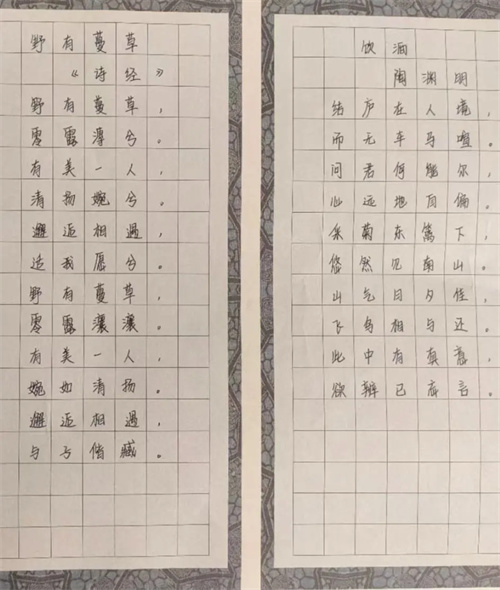 野有蔓草
《诗经》
野有蔓草，
零露漙兮。
有美一人，
清扬婉兮。
邂逅相遇，
适我愿兮。
野有蔓草，
零露瀼瀼。
有美一人，
婉如清扬。
邂逅相遇，
与子偕臧。
饮酒
陶渊明
结庐在人境，
而无车马喧。
问君何能尔，
心远地自偏。
采菊东篱下，
悠然见南山。
山气日夕佳，
飞鸟相与还。
此中有真意，
欲辨已忘言。